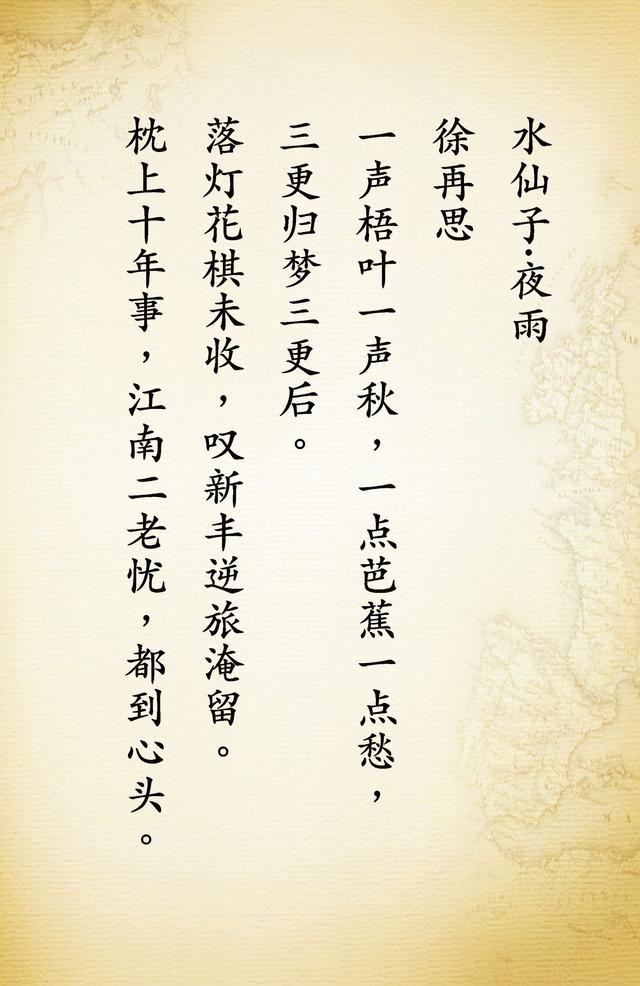 水仙子·夜雨
徐再思
一声梧叶一声秋，一点芭蕉一点愁，
三更归梦三更后。
落灯花棋未收，叹新丰逆旅淹留。
枕上十年事，江南二老忧，都到心头。